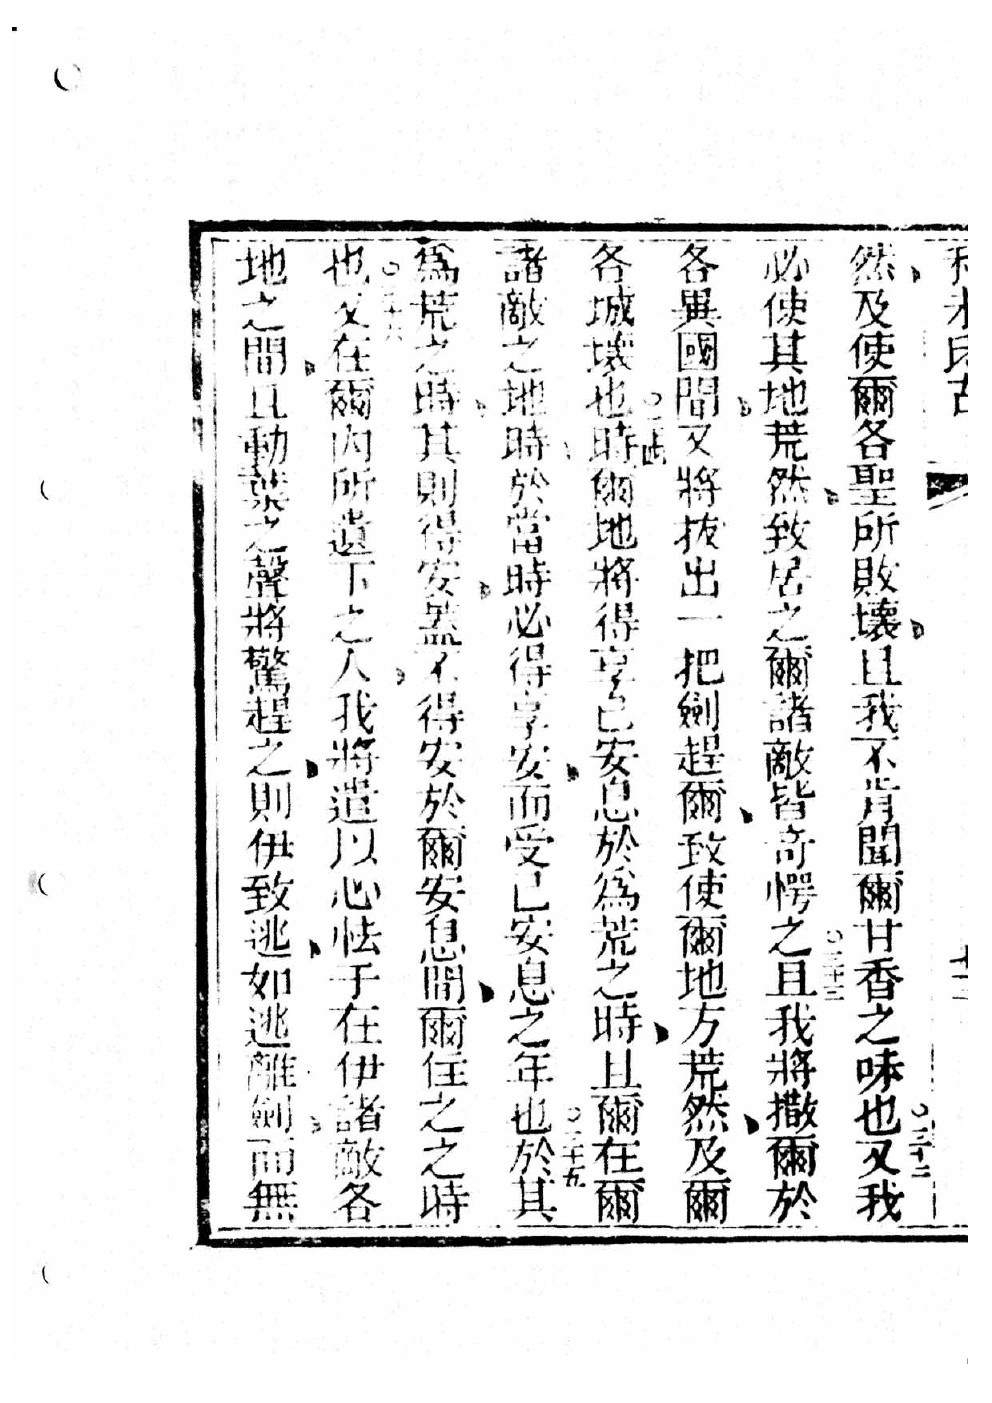 然及使爾各聖所敗壞且我不肯聞爾甘香之味也○三十二又我
必使其地荒然致居之爾諸敵皆奇愕之○三十三且我將撒爾於
各異國間又將拔出一把劍趕爾致使爾地方荒然及爾
各城壞也○三十四時爾地將得享己安息於爲荒之時且爾在爾
諸敵之地時於當時必得享安而受己安息之年也○三十五於其
爲荒之時其則得安蓋不得安於爾安息間爾住之之時
也○三十六又在爾內所遺下之人我將遣以心怯于在伊諸敵各
地之間且動葉之聲將驚趕之則伊致逃如逃離劍而無